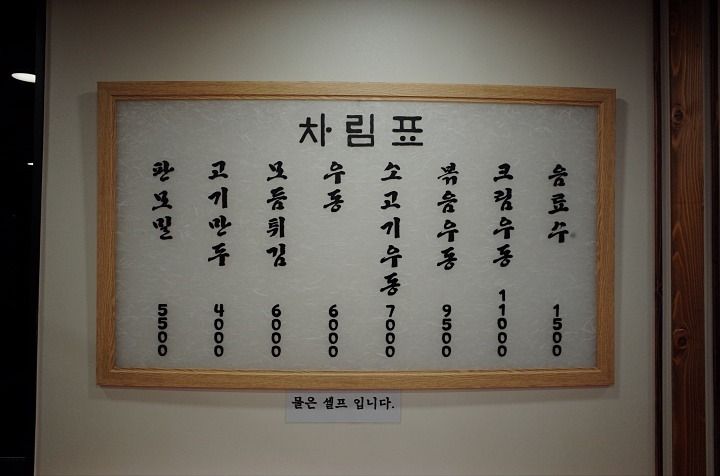 차림표
판모밀 5500
고기만두 4000
모듬튀김 6000
우동 6000
소고기우동 7000
볶음우동 9500
크림우동 11000
음료수 1500
물은 셀프 입니다.